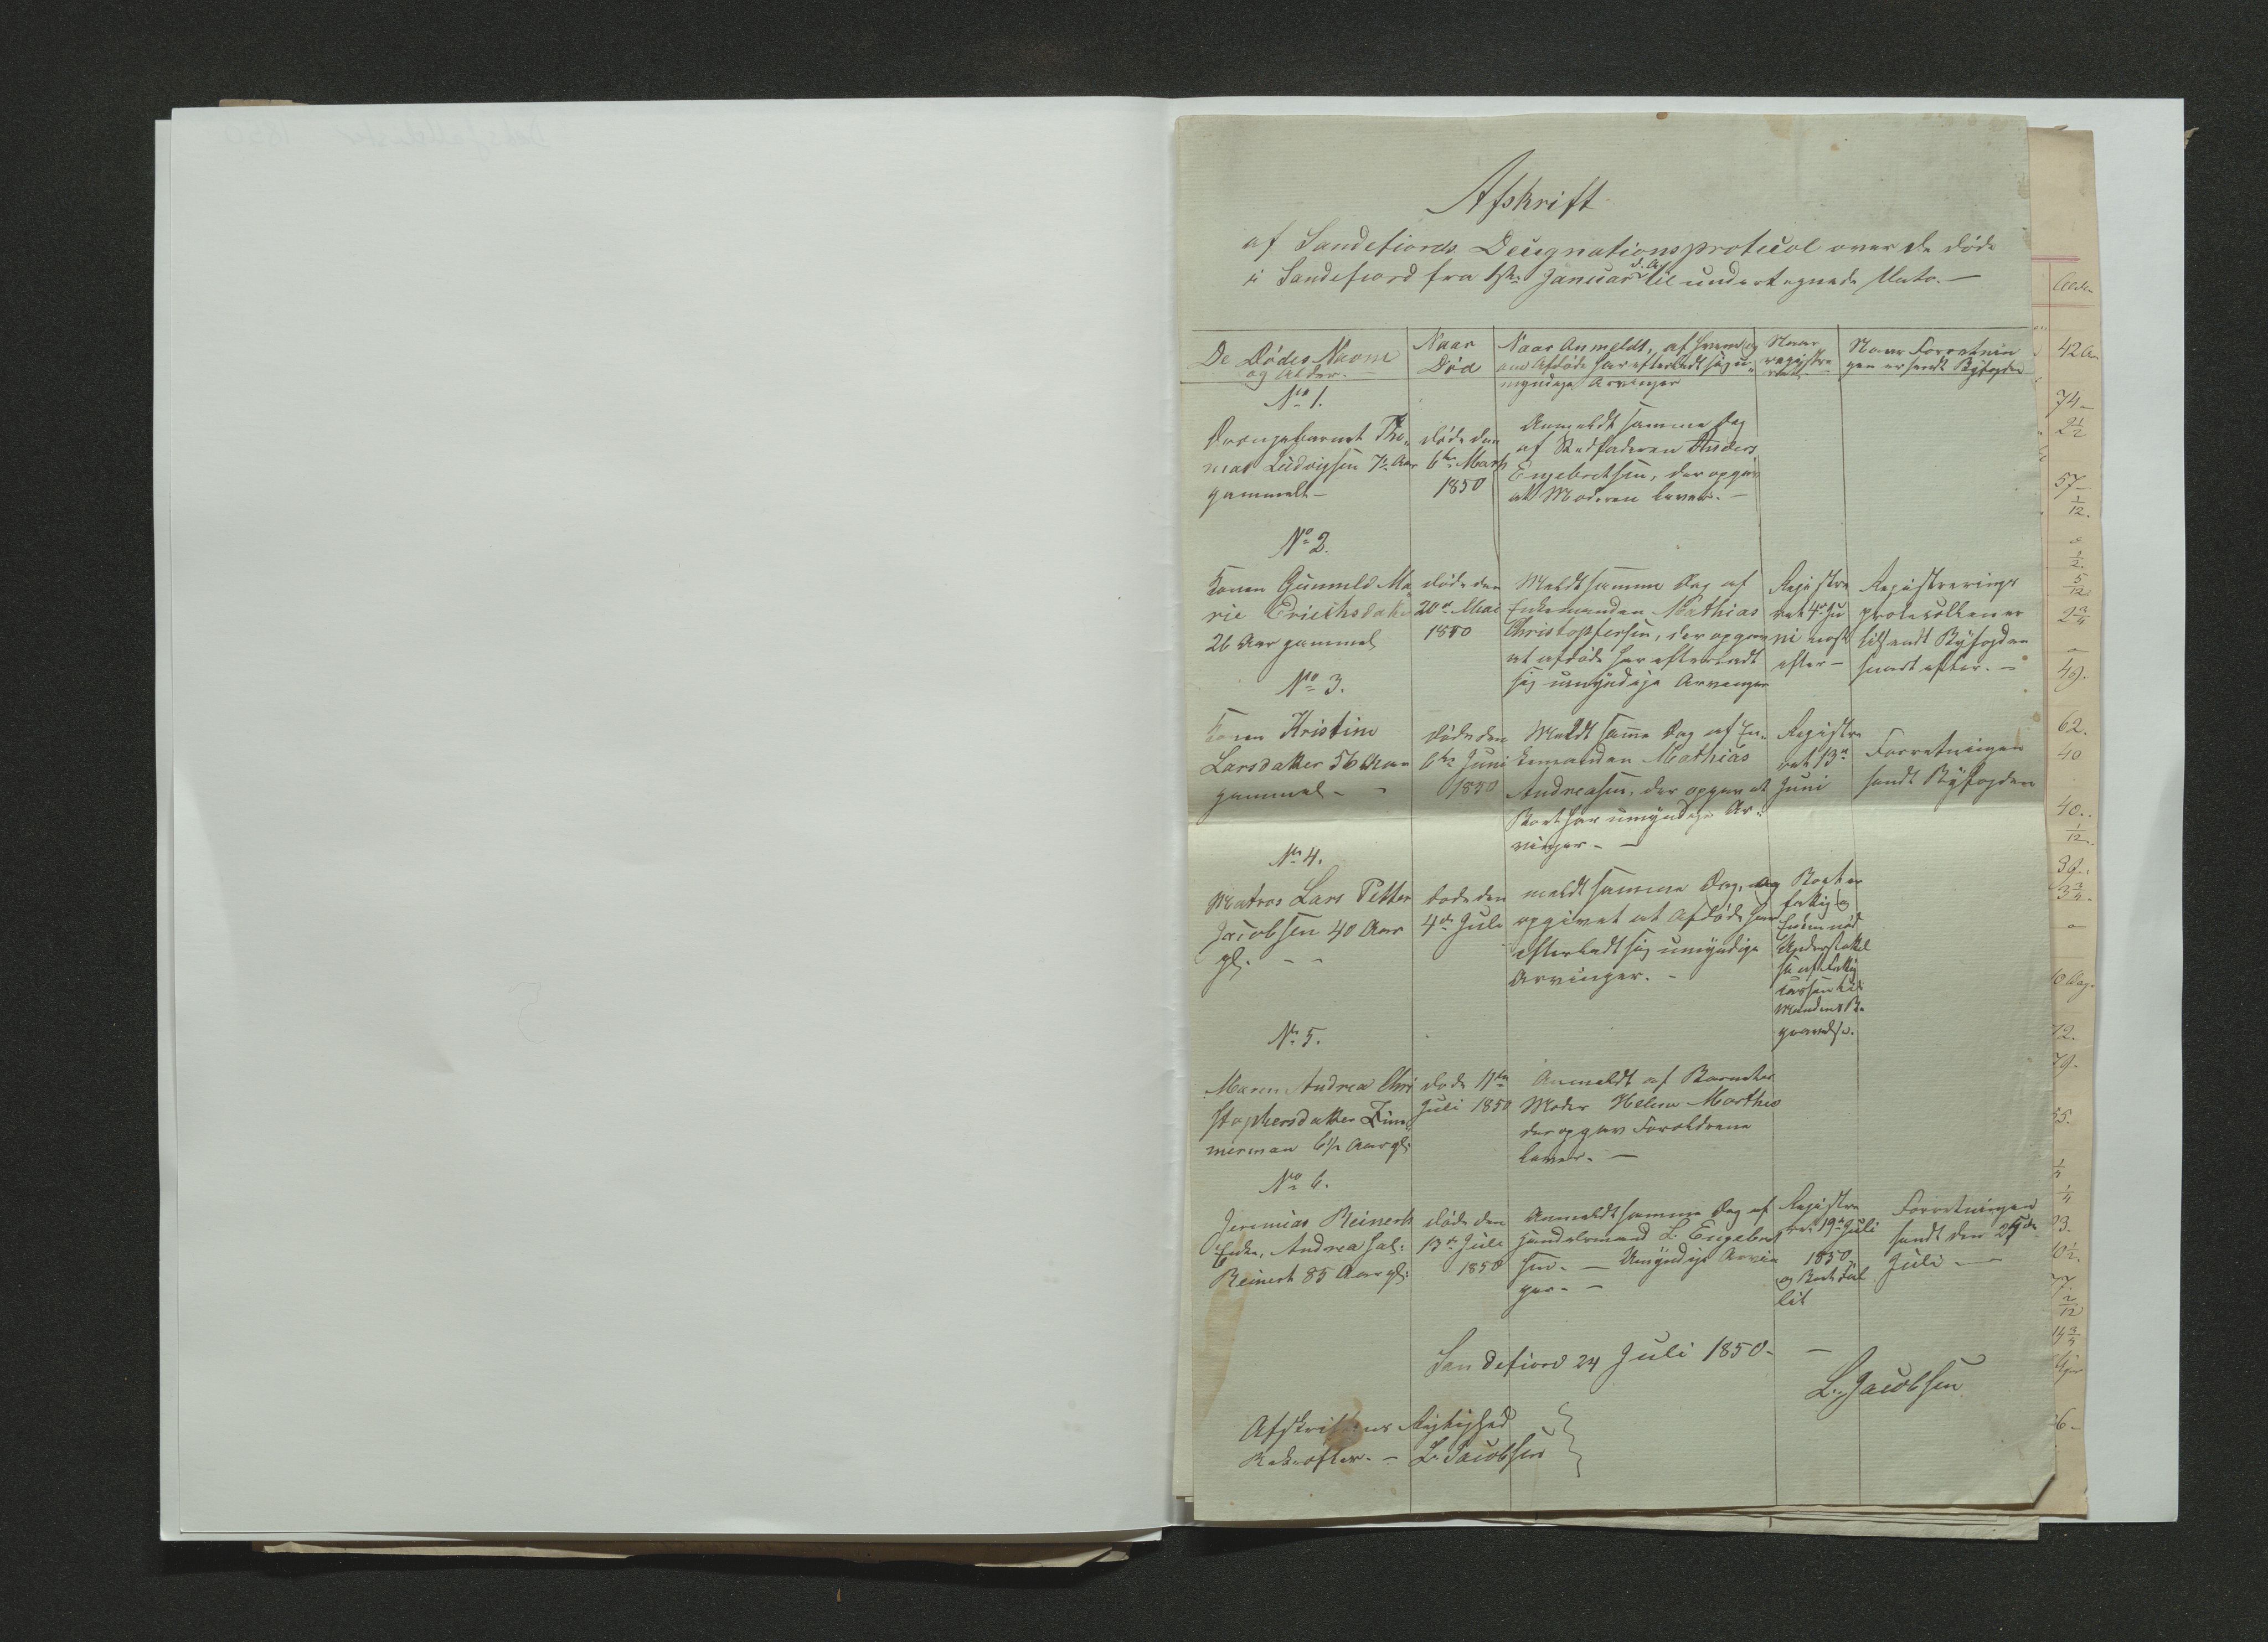 Afskrift
af Sandefiords Decignationsprotocol over de døde
i Sandefiord fra 1ste Januar d. A. til undertegnede Dato. —
De Dødes Navne
og Alder.
Naar
Død
Naar Anmeldt, af hvem og
om Afdøde har efterladt sig u-
myndige Arvinger
Naar
registre-
ret
Naar Forretnin
gen er sendt Byfogden
No 1.
Drengebarnet Tho-
mas Ludvigsen 7 Aar
gammelt —
døde den
6te Marts
1850
Anmeldt samme Dag
af Stedfaderen Anders
Engebretsen, der opgav
at Moderen lever. —
No 2.
Konen Gunnild Ma-
rie Erichsdatter
26 Aar gammel
døde den
20de Mai
1850
Meldt samme Dag af
Enkemanden Mathias
Christophersen, der opgav
at afdøde har efterladt
sig umyndige Arvinger
Registre
ret 4de Ju
ni næst
efter —
Registrerings
protocollen er
tilsendt Byfogden
snart efter. —
No 3.
Konen Kristine
Larsdatter 56 Aar
gammel —
døde den
6te Juni
1850
Meldt samme Dag af En-
kemanden Mathias
Andreasen, der opgav at
Boet har umyndige Ar-
vinger —
Registre
ret 13de
Juni
Forretningen
sendt Byfogden
No 4.
Matros Lars Petter
Jacobsen 40 Aar
gl. - -
døde den
4de Juli
meldt samme Dag, og
opgivet at Afdøde har
efterladt sig umyndige
Arvinger. -
Boet er
fattig og
Enken nød
Understøttel
se af Fattig
cassen til
Mandens Be-
gravelse.
No 5.
Maren Andrea Chri
stophersdatter Zim-
merman 6½ Aar gl.
døde 11te
Juli 1850
Anmeldt af Barnets
Moder Helene Marthe
der opgav Forældrene
lever. —
No 6.
Jeremias Reinerts
Enke, Andrea Sal:
Reinert 85 Aar gl:
døde den
13de Juli
1850
Anmeldt samme Dag af
Handelsmand L. Engebret
sen. — Umyndige Arvin
ger. -
Registre
ret 19de Juli
1850
og Boet Fal
lit
Forretningen
sendt den 25de
Juli —
Sandefiord 24 Juli 1850. —
L. Jacobsen
Afskriftens Rigtighed
Bekræfter. — L. Jacobsen
Alder
42 Aar
74 —
2½
57 —
1/12.
½.
5/12
2¾
49.
62.
40
40..
1/12.
39..
3¾.
10 Dag.
72.
79.